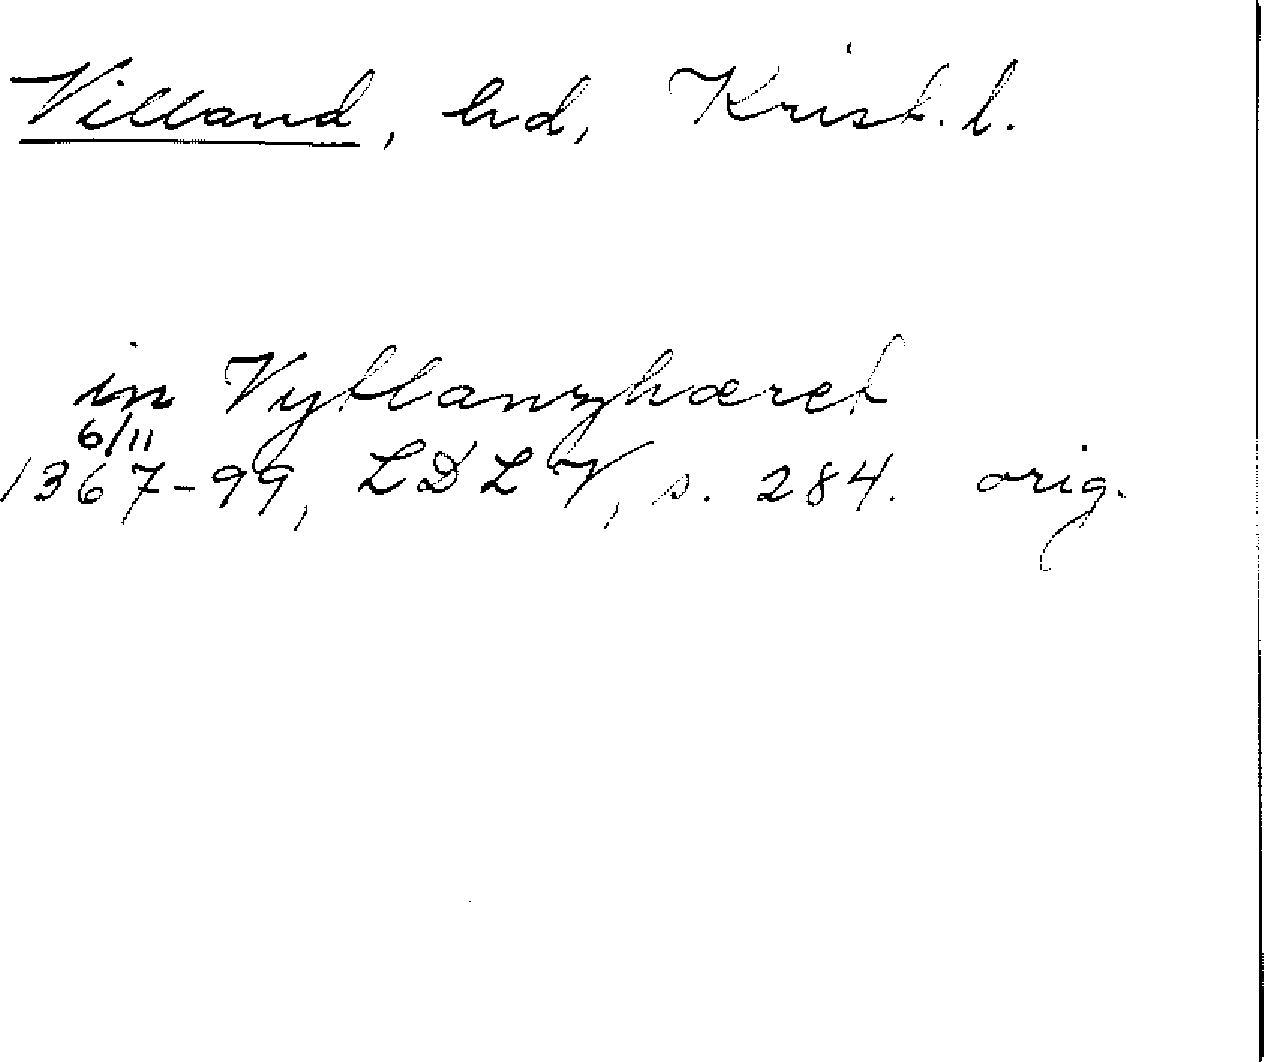 Villand, hd, Krist. l.
in Vytlanzhæret
6/11
1367-99, LDL V, s. 284. orig.